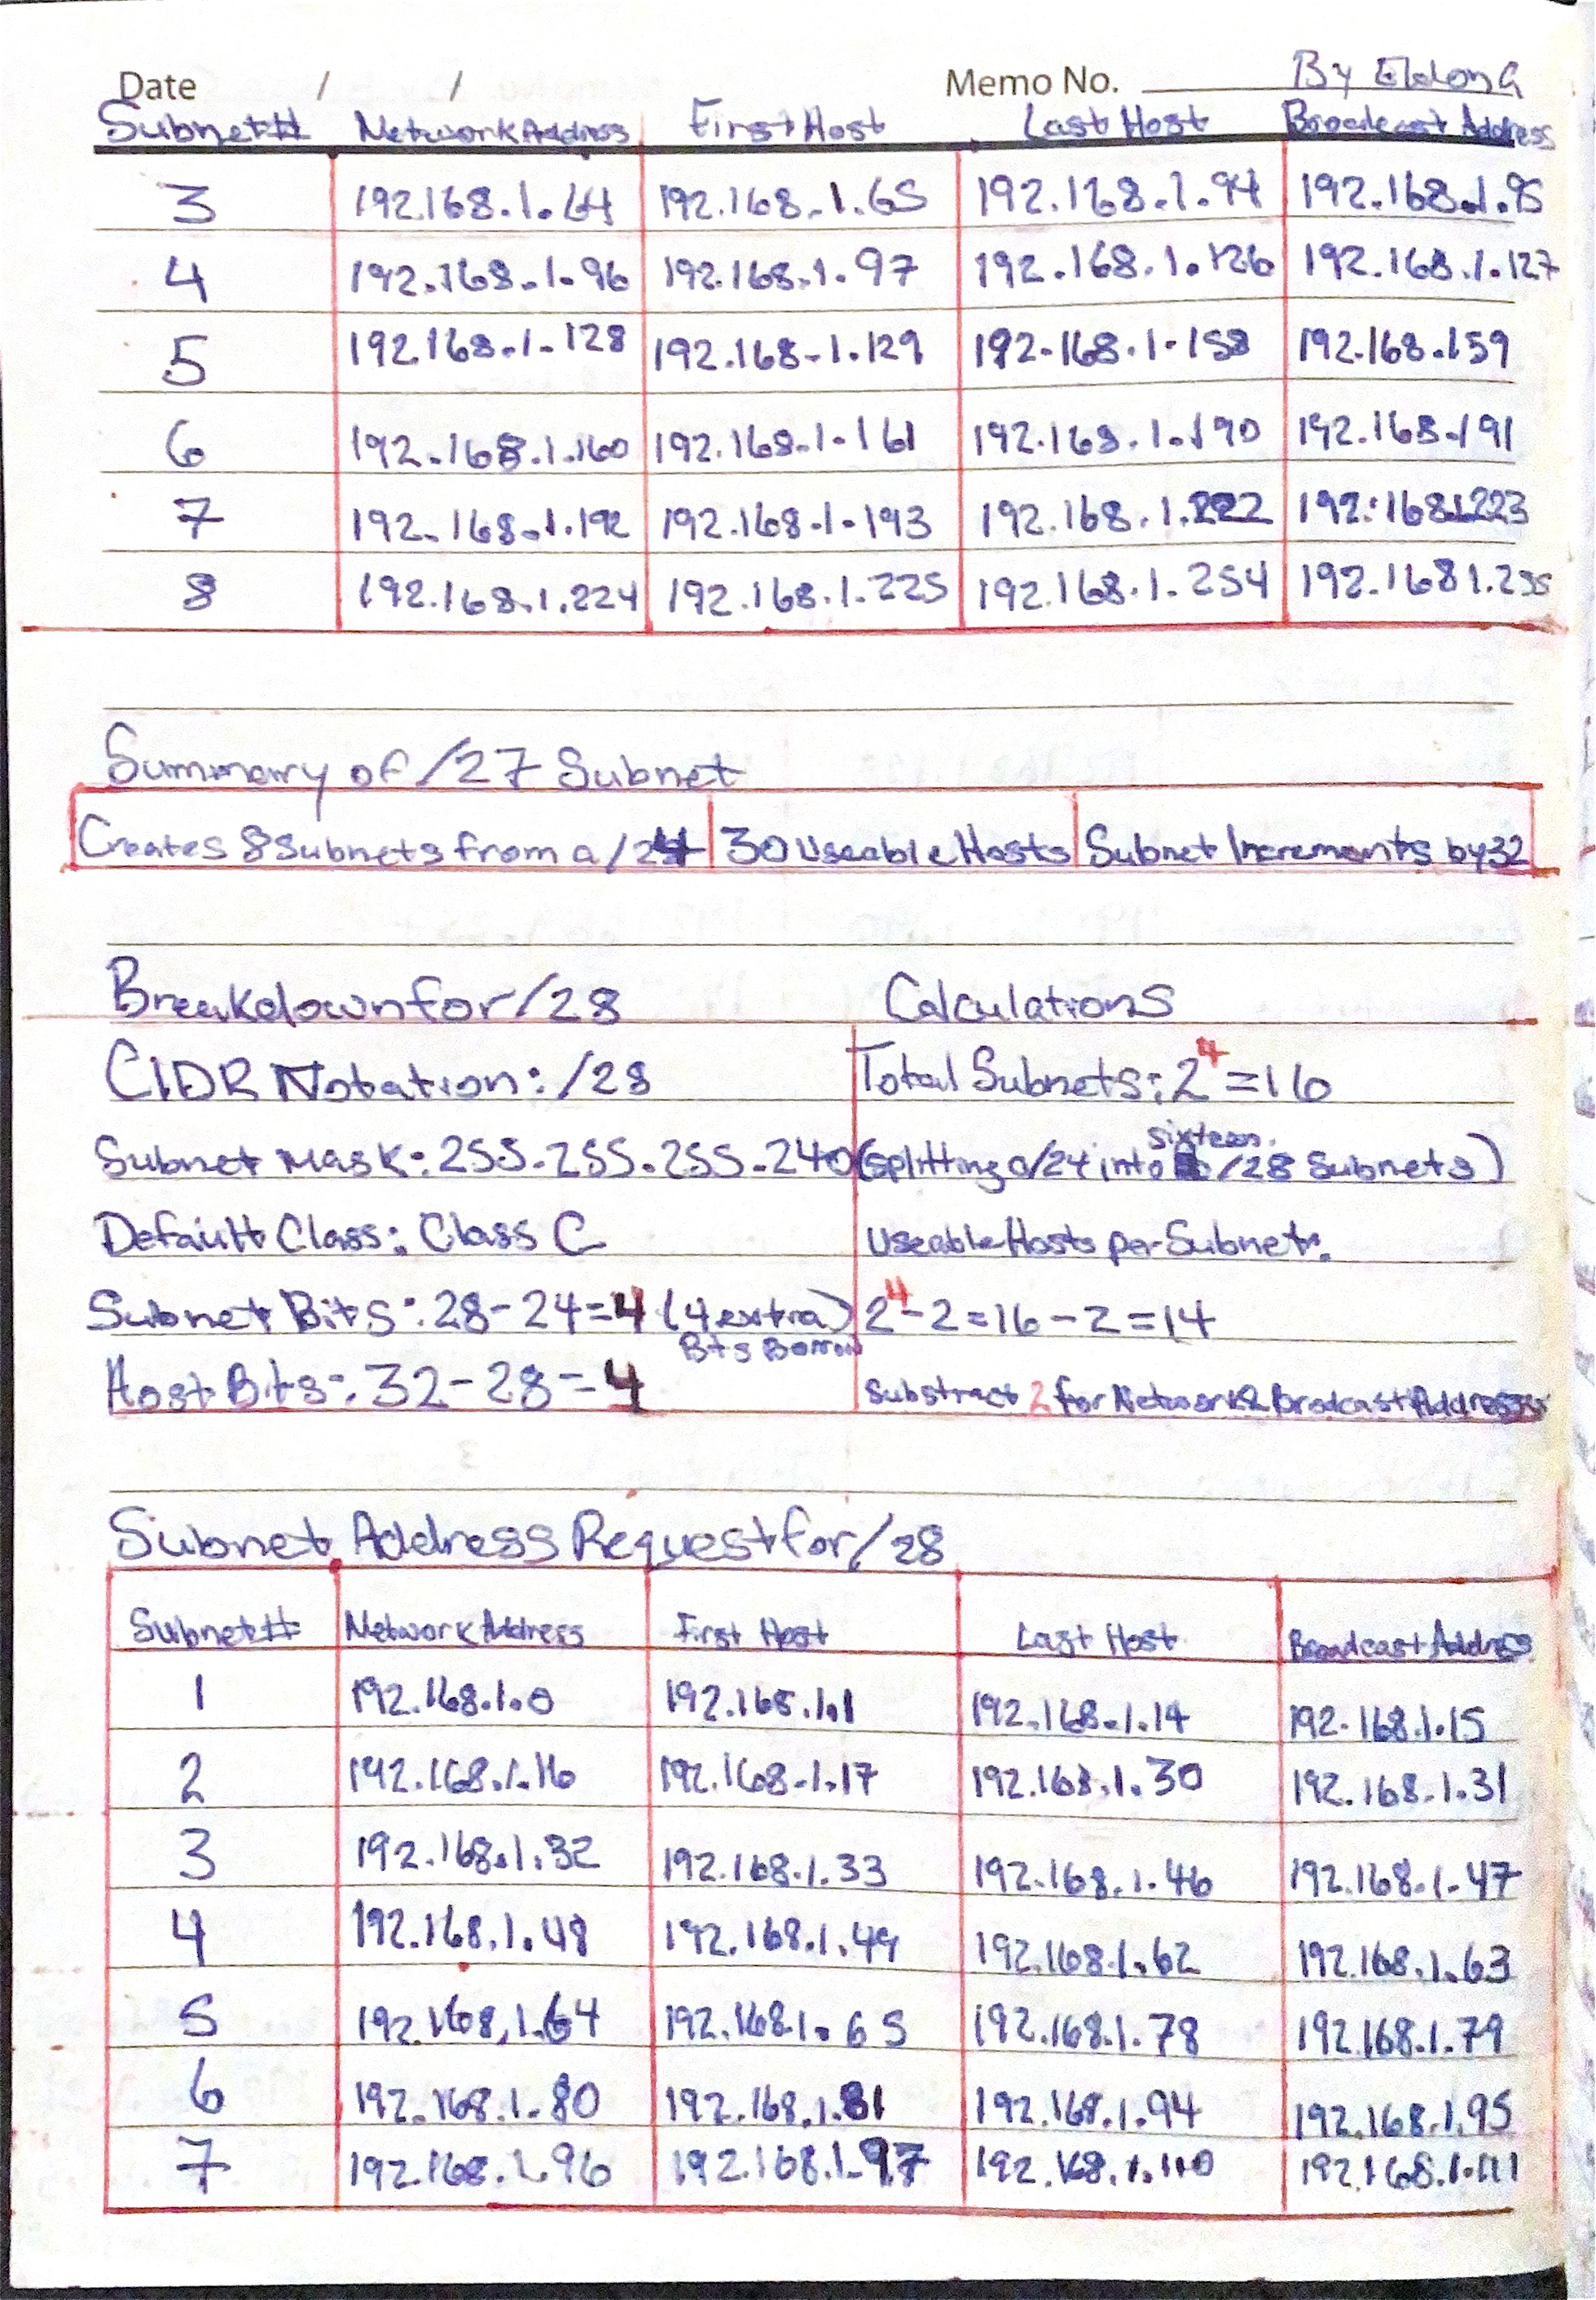 Date / / Memo No. By Eldon G
Subnet# Network Address First Host Last Host Broadcast Address
3 192.168.1.64 192.168.1.65 192.168.1.94 192.168.1.95
4 192.168.1.96 192.168.1.97 192.168.1.126 192.168.1.127
5 192.168.1.128 192.168.1.129 192.168.1.158 192.168.159
6 192.168.1.160 192.168.1.161 192.168.1.190 192.168.191
7 192.168.1.192 192.168.1.193 192.168.1.222 192.168.1.223
8 192.168.1.224 192.168.1.225 192.168.1.254 192.168 1.255
Summary of /27 Subnet
Creates 8 Subnets from a /24 30 Useable Hosts Subnet Increments by 32
Breakdown for /28 Calculations
CIDR Notation: /28 Total Subnets: 2⁴ = 16
Subnet Mask: 255.255.255.240 (splitting a /24 into sixteen /28 Subnets)
Default Class: Class C Useable Hosts per Subnet:
Subnet Bits: 28-24=4 (4 extra) 2⁴-2=16-2=14
Bits Borrow
Host Bits: 32-28=4 Substract 2 for Network & Brodcast Address
Subnet Address Request for /28
Subnet# Network Address First Host Last Host Broadcast Address
1 192.168.1.0 192.168.1.1 192.168.1.14 192.168.1.15
2 192.168.1.16 192.168.1.17 192.168.1.30 192.168.1.31
3 192.168.1.32 192.168.1.33 192.168.1.46 192.168.1.47
4 192.168.1.48 192.168.1.49 192.168.1.62 192.168.1.63
5 192.168.1.64 192.168.1.65 192.168.1.78 192.168.1.79
6 192.168.1.80 192.168.1.81 192.168.1.94 192.168.1.95
7 192.168.1.96 192.168.1.97 192.168.1.110 192.168.1.111